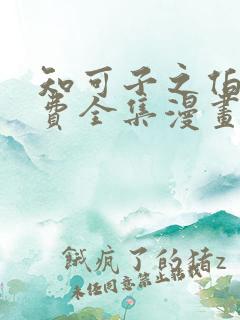 知可子之伯
费全集漫畫
餓疯了的猪z
未经同意禁止转载